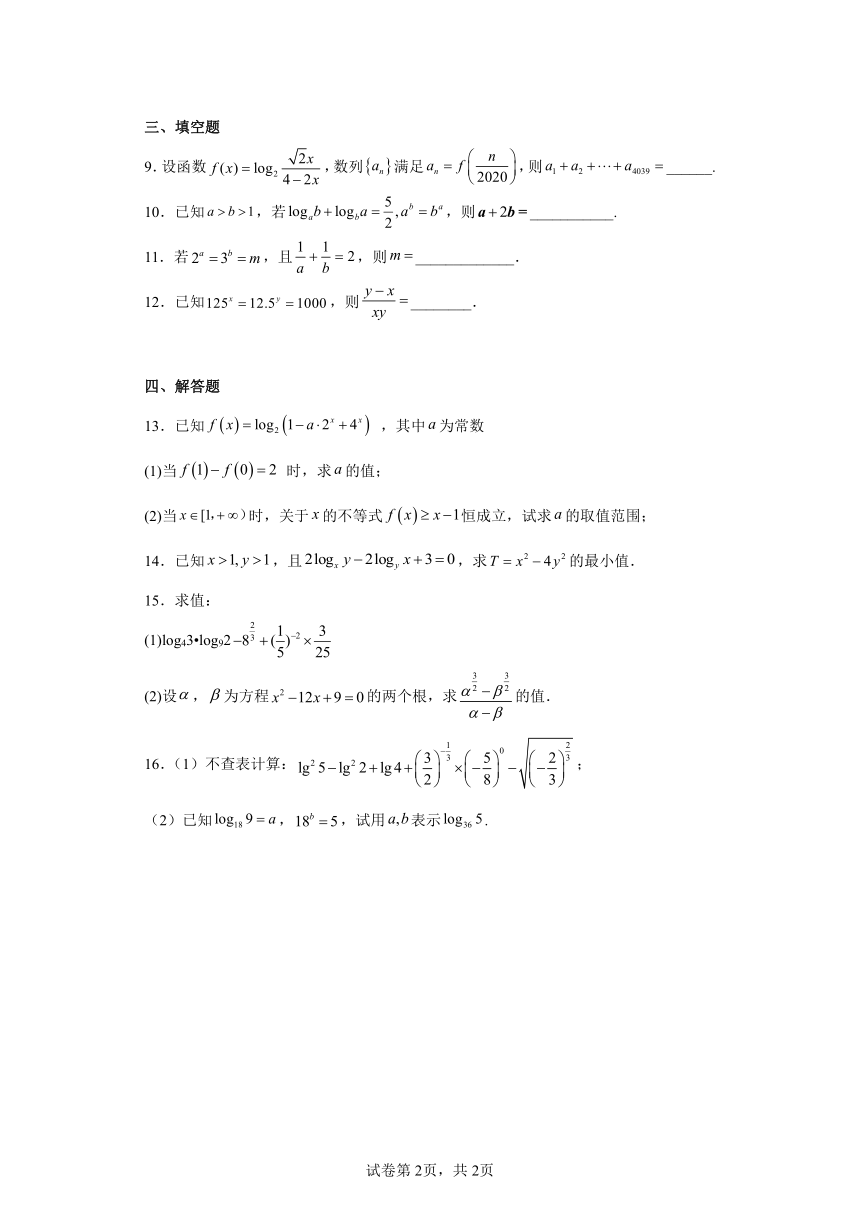 三、填空题
9.设函数 $f(x)=\log_2\frac{\sqrt{2}x}{4-2x}$,数列 $\{a_n\}$ 满足 $a_n=f\left(\frac{n}{2020}\right)$,则 $a_1+a_2+\cdots+a_{4039}=$______.
10．已知 $a>b>1$，若 $\log_a b+\log_b a=\frac{5}{2},a^b=b^a$，则 $a+2b=$___________.
11．若 $2^a=3^b=m$，且 $\frac{1}{a}+\frac{1}{b}=2$，则 $m=$_____________．
12．已知 $125^x=12.5^y=1000$，则 $\frac{y-x}{xy}=$________．
四、解答题
13．已知 $f(x)=\log_2(1-a\cdot2^x+4^x)$ ，其中 $a$ 为常数
(1)当 $f(1)-f(0)=2$ 时，求 $a$ 的值；
(2)当 $x\in[1,+\infty)$时，关于 $x$ 的不等式 $f(x)\geq x-1$恒成立，试求 $a$ 的取值范围；
14．已知 $x>1,y>1$，且 $2\log_x y-2\log_y x+3=0$，求 $T=x^2-4y^2$ 的最小值．
15．求值：
(1)$\log_4 3•\log_9 2-8^{\frac{2}{3}}+(\frac{1}{5})^{-2}\times\frac{3}{25}$
(2)设 $\alpha$，$\beta$ 为方程 $x^2-12x+9=0$ 的两个根，求 $\frac{\alpha^{\frac{3}{2}}-\beta^{\frac{3}{2}}}{\alpha-\beta}$ 的值．
16．（1）不查表计算：$\lg^2 5-\lg^2 2+\lg 4+\left(\frac{3}{2}\right)^{-\frac{1}{3}}\times\left(-\frac{5}{8}\right)^0-\sqrt{\left(-\frac{2}{3}\right)^{\frac{2}{3}}}$；
（2）已知 $\log_{18}9=a$，$18^b=5$，试用 $a,b$ 表示 $\log_{36}5$．
试卷第 2页，共 2页